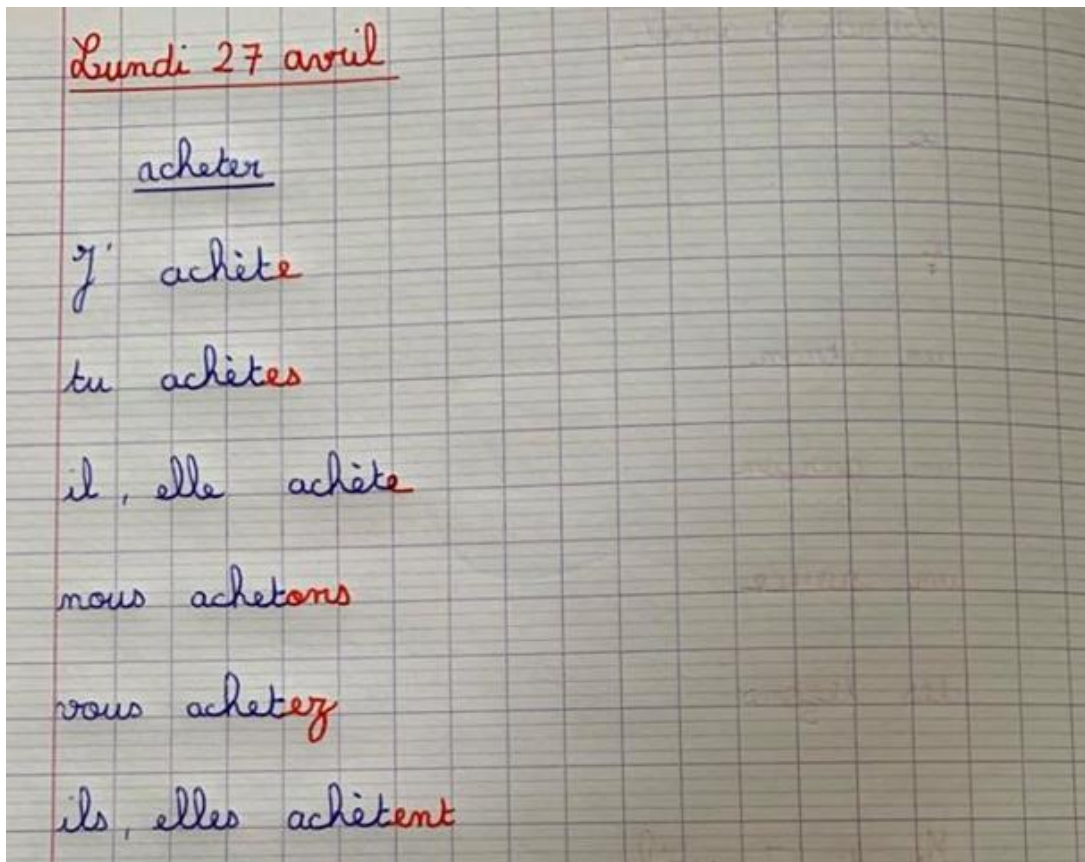 Lundi 27 avril
acheter
J' achète
tu achètes
il, elle achète
nous achetons
vous achetez
ils, elles achètent